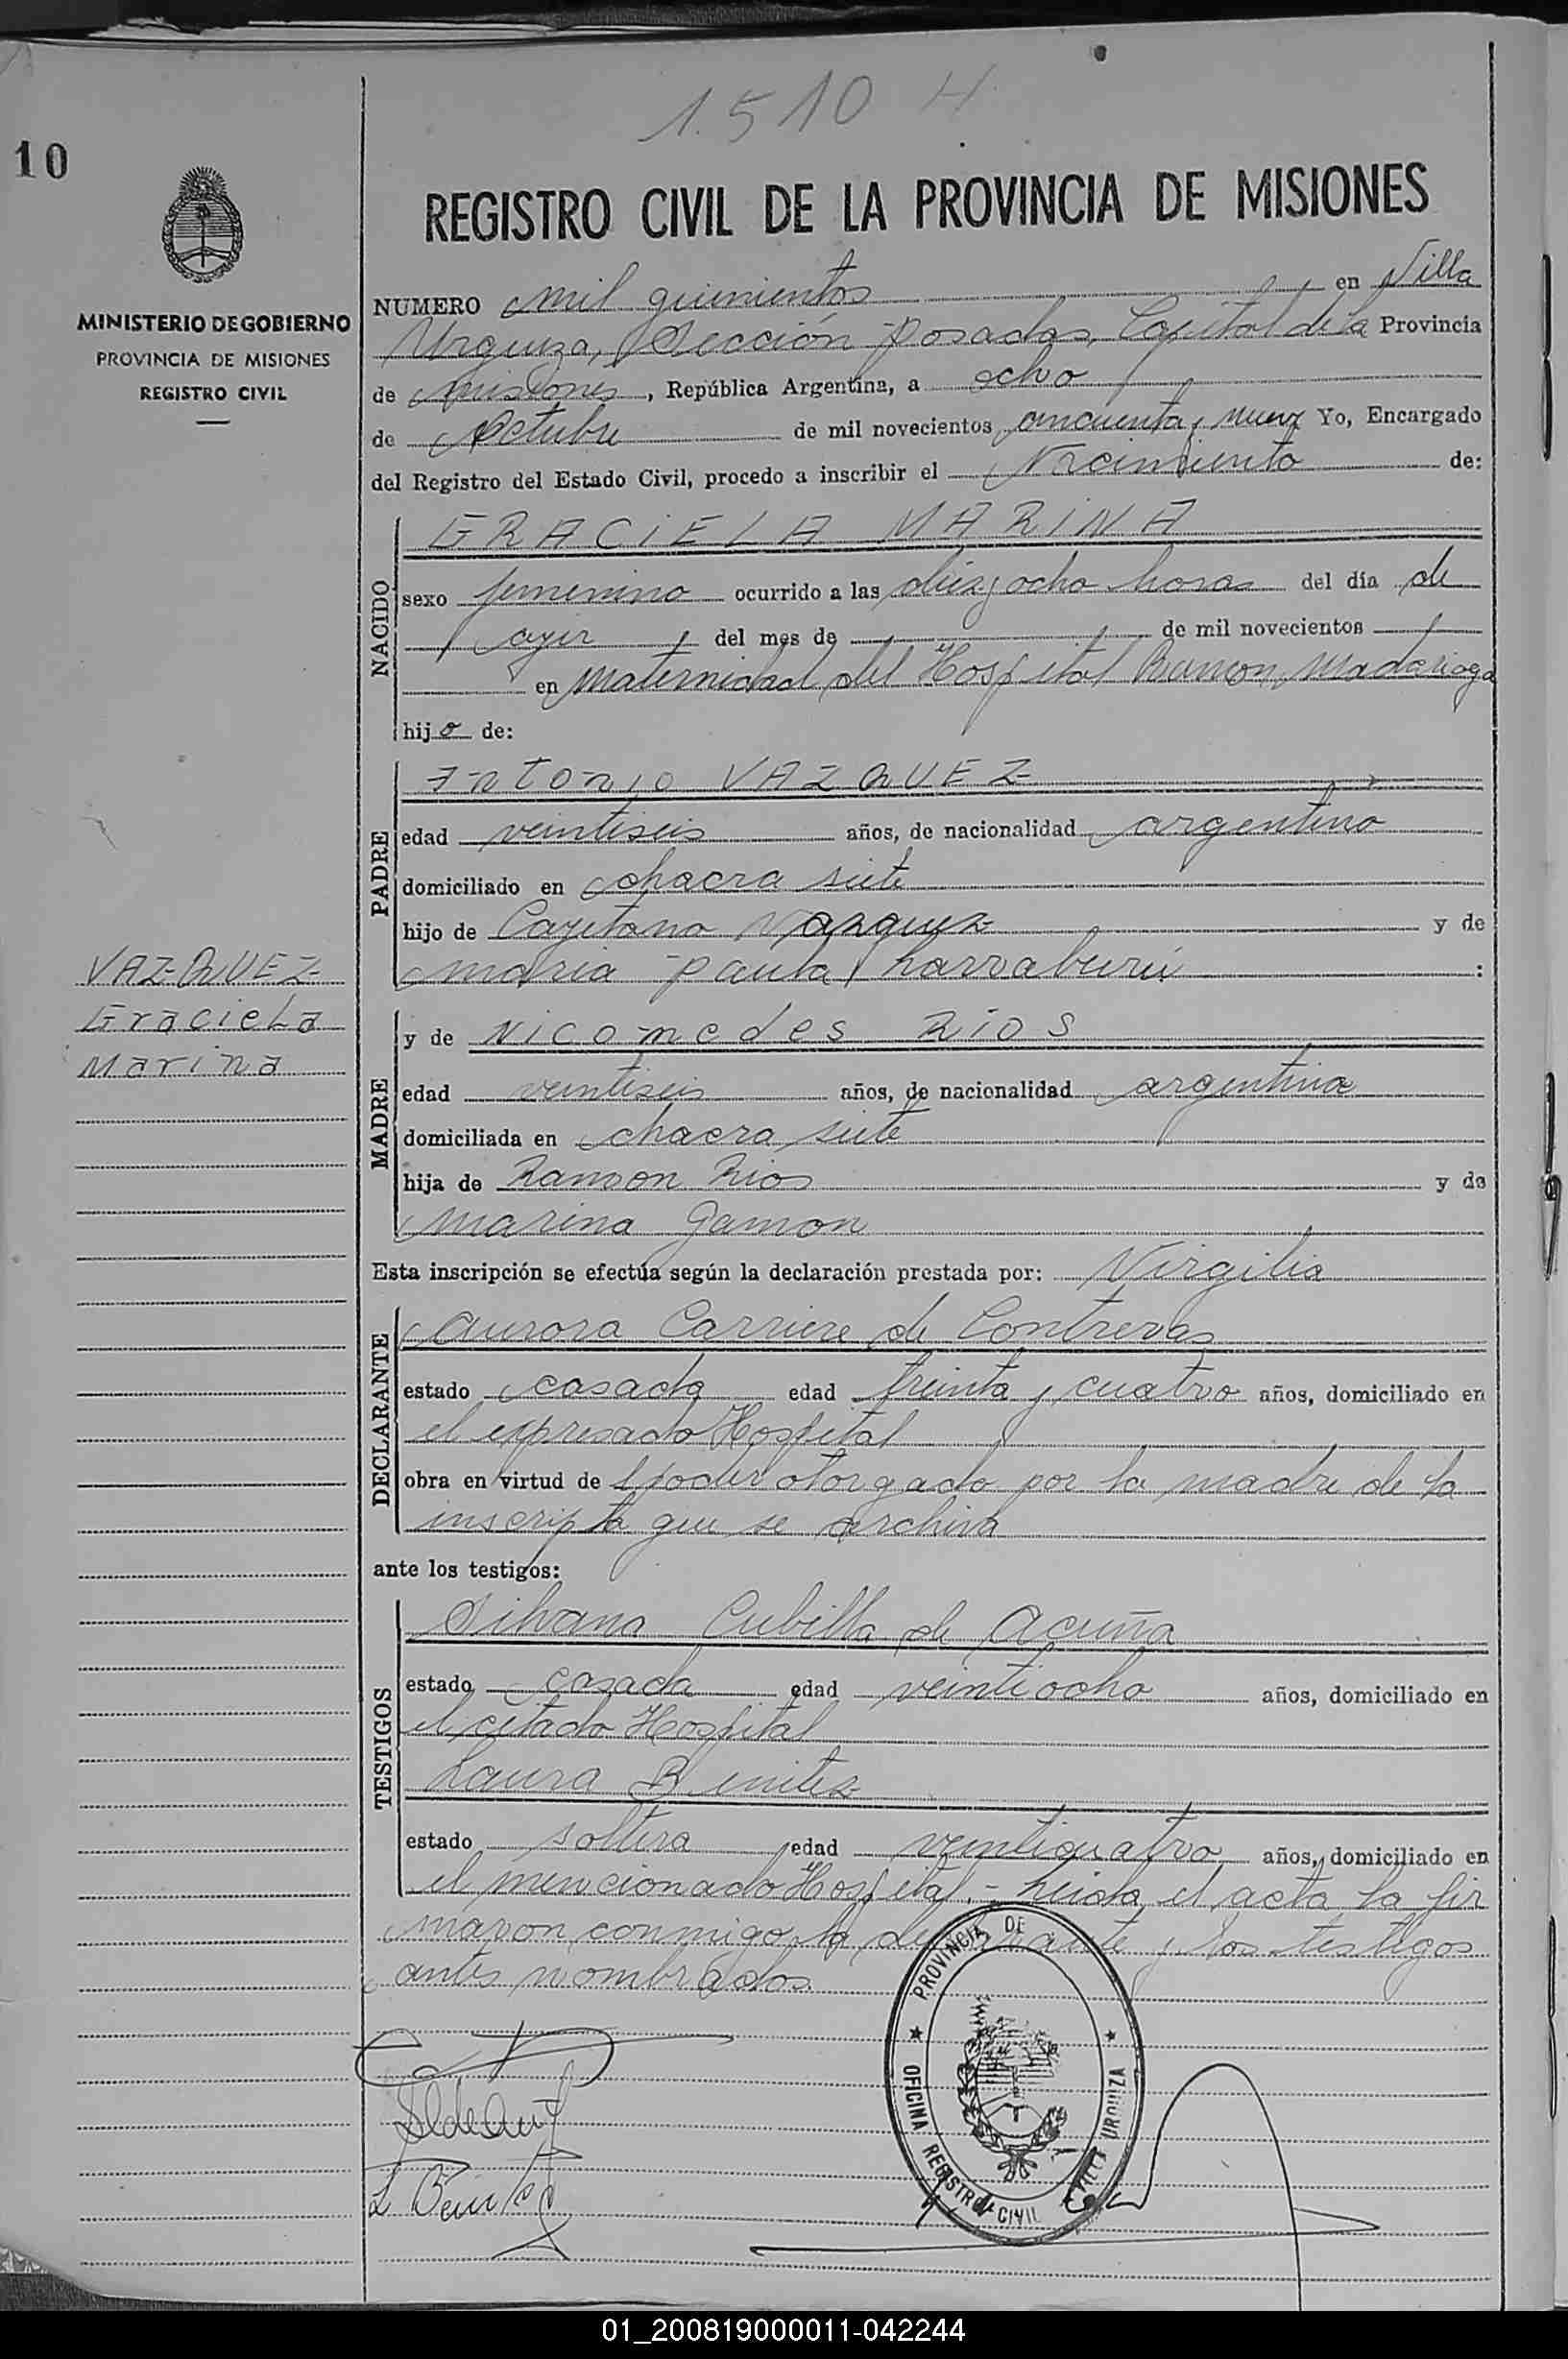 1.510 H
10
REGISTRO CIVIL DE LA PROVINCIA DE MISIONES
MINISTERIO DE GOBIERNO
PROVINCIA DE MISIONES
REGISTRO CIVIL
NUMERO mil quinientos en Villa
Urquiza, Sección Posadas, Capital de la Provincia
de Misiones, República Argentina, a ocho
de Octubre de mil novecientos cincuenta y nueve Yo, Encargado
del Registro del Estado Civil, procedo a inscribir el Nacimiento de:
NACIDO
GRACIELA MARINA
sexo femenino ocurrido a las diez y ocho horas del día de
ayer del mes de de mil novecientos
en Maternidad del Hospital Ramon Madariaga
hijo de:
PADRE
Antonio VAZQUEZ
edad veintiseis años, de nacionalidad argentino
domiciliado en chacra siete
hijo de Cayetano Vazquez y de
Maria Paula Larraburú :
VAZQUEZ
Graciela
Marina
MADRE
y de Nicomedes RIOS
edad veintiseis años, de nacionalidad argentina
domiciliada en chacra siete
hija de Ramon Rios y de
Marina Gamon
Esta inscripción se efectúa según la declaración prestada por: Virgilia
DECLARANTE
Aurora Carriere de Contreras
estado casada edad treinta y cuatro años, domiciliado en
el expresado Hospital
obra en virtud de poder otorgado por la madre de la
inscripta que se archiva
ante los testigos:
TESTIGOS
Silvana Cubilla de Acuña
estado casada edad veintiocho años, domiciliado en
el citado Hospital
Laura Benitez
estado soltera edad veinticuatro años, domiciliado en
el mencionado Hospital.- Leida el acta la fir
maron conmigo la declarante y los testigos
antes nombrados.
PROVINCIA DE
OFICINA REGISTRO CIVIL
VILLA URQUIZA
S C de Acuña
L Benitez
01_200819000011-042244